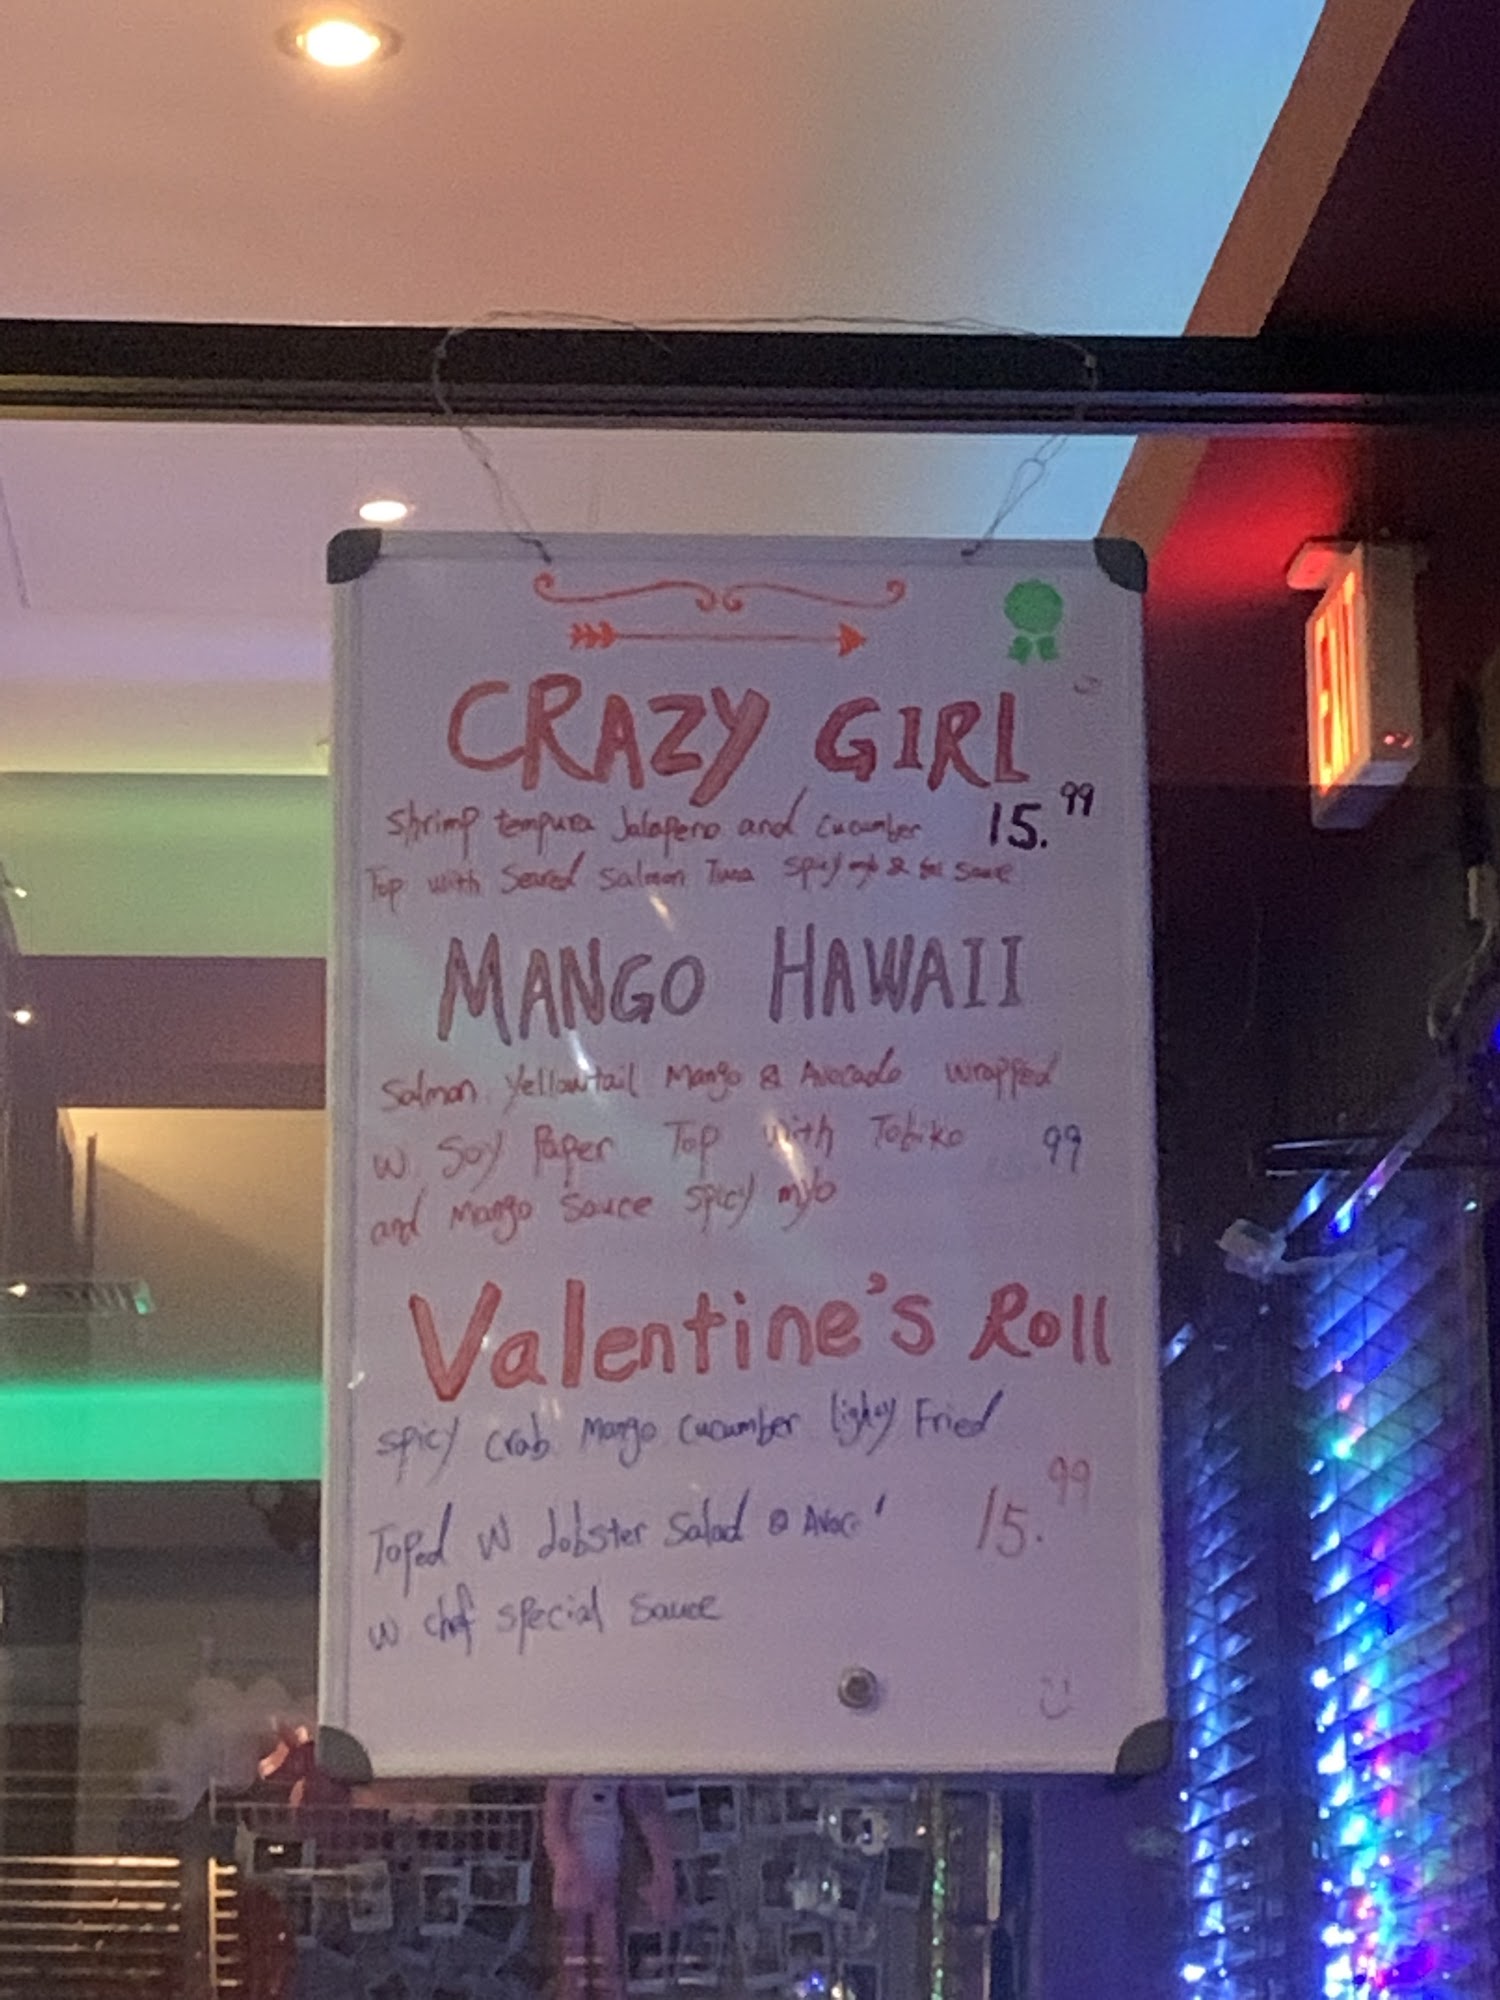 CRAZY GIRL
Shrimp tempura Jalapeno and cucumber 15.99
Top with Seared Salmon Tuna Spicy myo & Sauce
MANGO HAWAII
Salmon, Yellowtail Mango & Avocado wrapped
w. Soy Paper Top with Tobiko 99
and Mango Sauce Spicy myo
Valentine's Roll
spicy crab Mango Cucumber Fried
Toped w Lobster Salad 15.99
w chef special Sauce